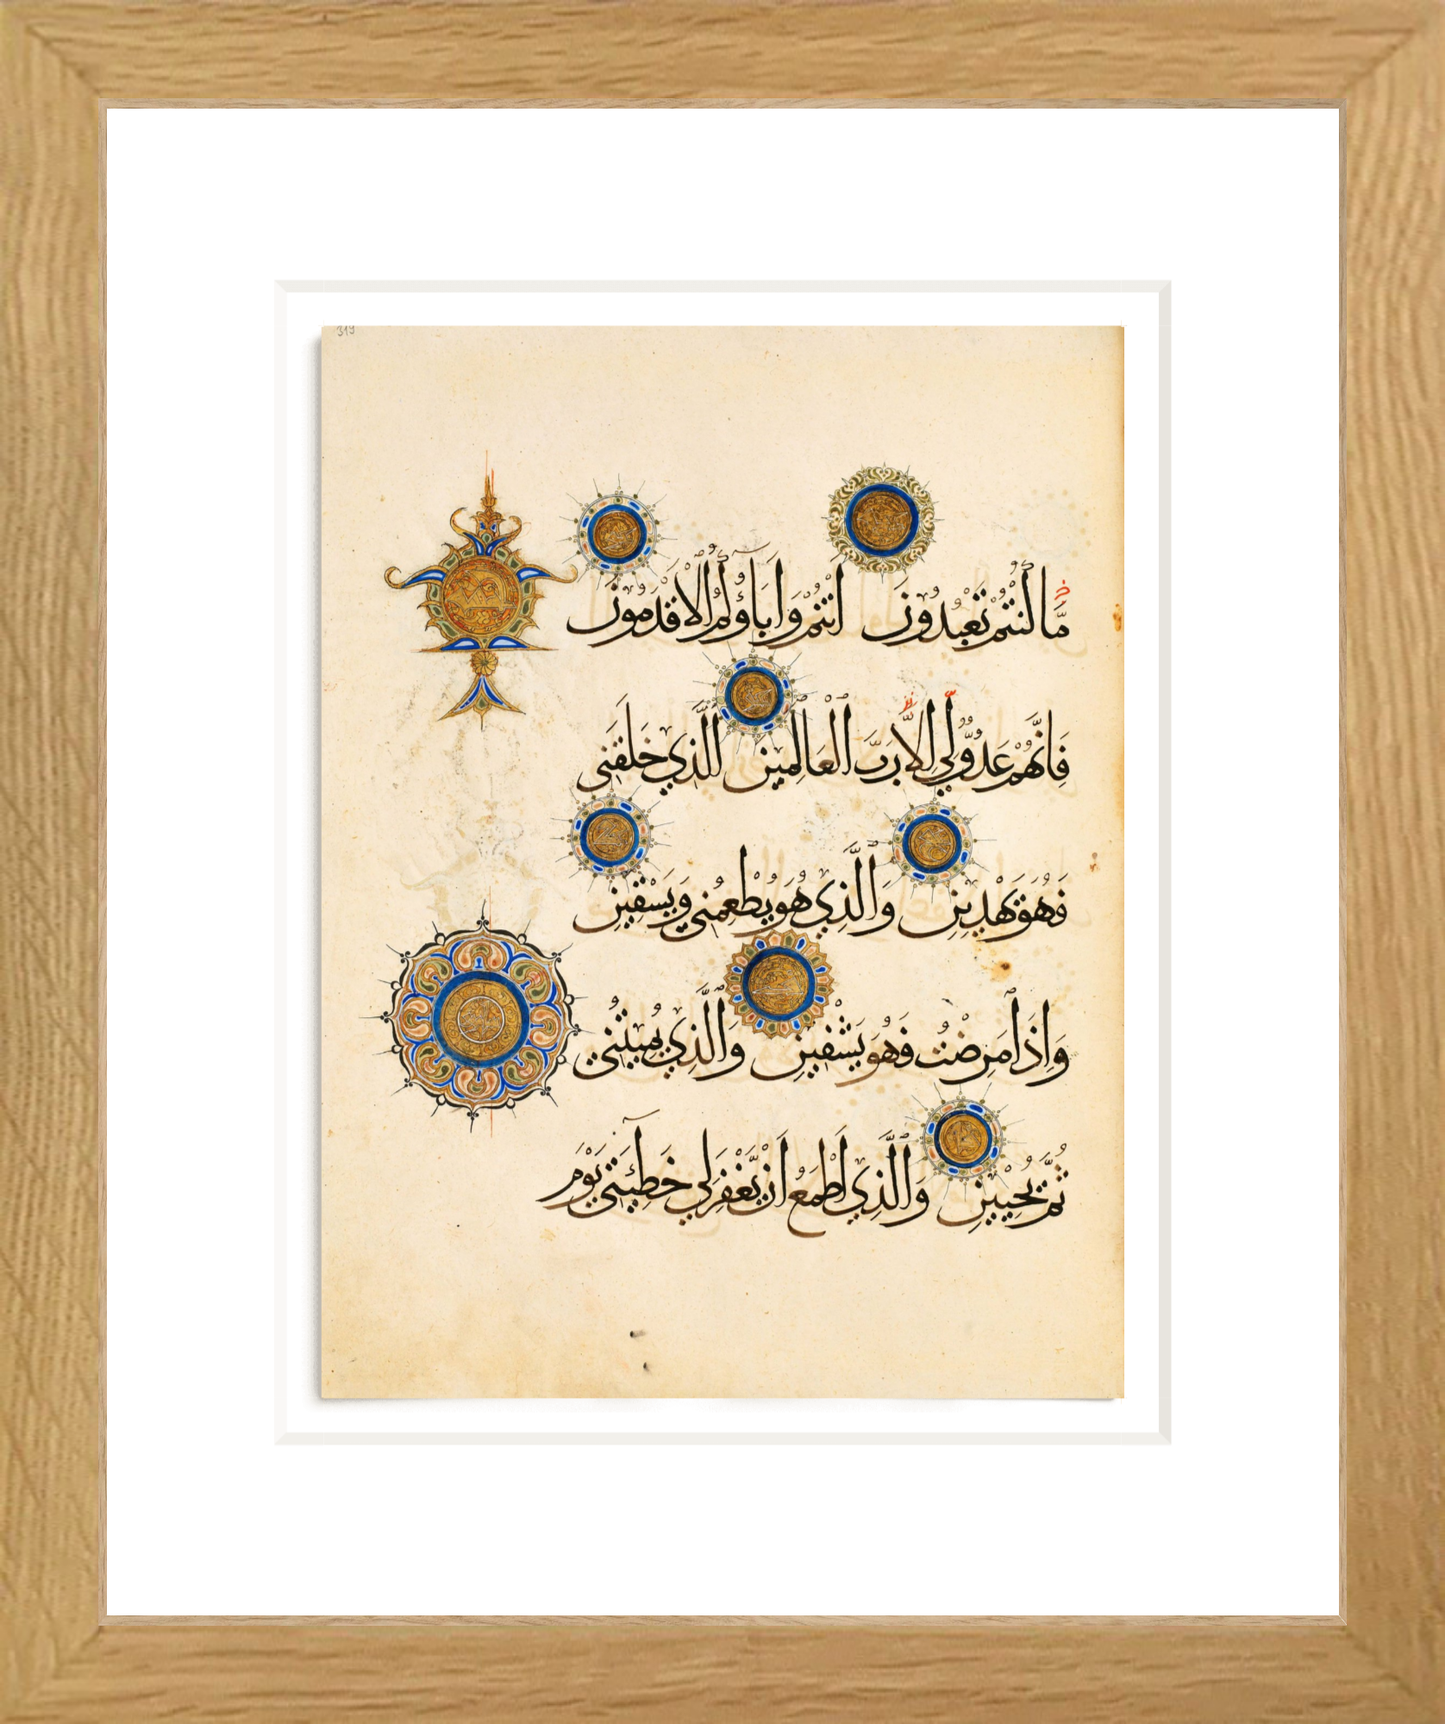 319
مَّا كُنْتُمْ تَعْبُدُونَ اَنْتُمْ وَاٰبَاؤُكُمُ الْاَقْدَمُونَ
فَاِنَّهُمْ عَدُوٌّ لِي اِلَّا رَبَّ الْعَالَمِينَ الَّذِي خَلَقَنِي
فَهُوَ يَهْدِينِ وَالَّذِي هُوَ يُطْعِمُنِي وَيَسْقِينِ
وَاِذَا مَرِضْتُ فَهُوَ يَشْفِينِ وَالَّذِي يُمِيتُنِي
ثُمَّ يُحْيِينِ وَالَّذِي اَطْمَعُ اَنْ يَّغْفِرَ لِي خَطِيئَتِي يَوْمَ